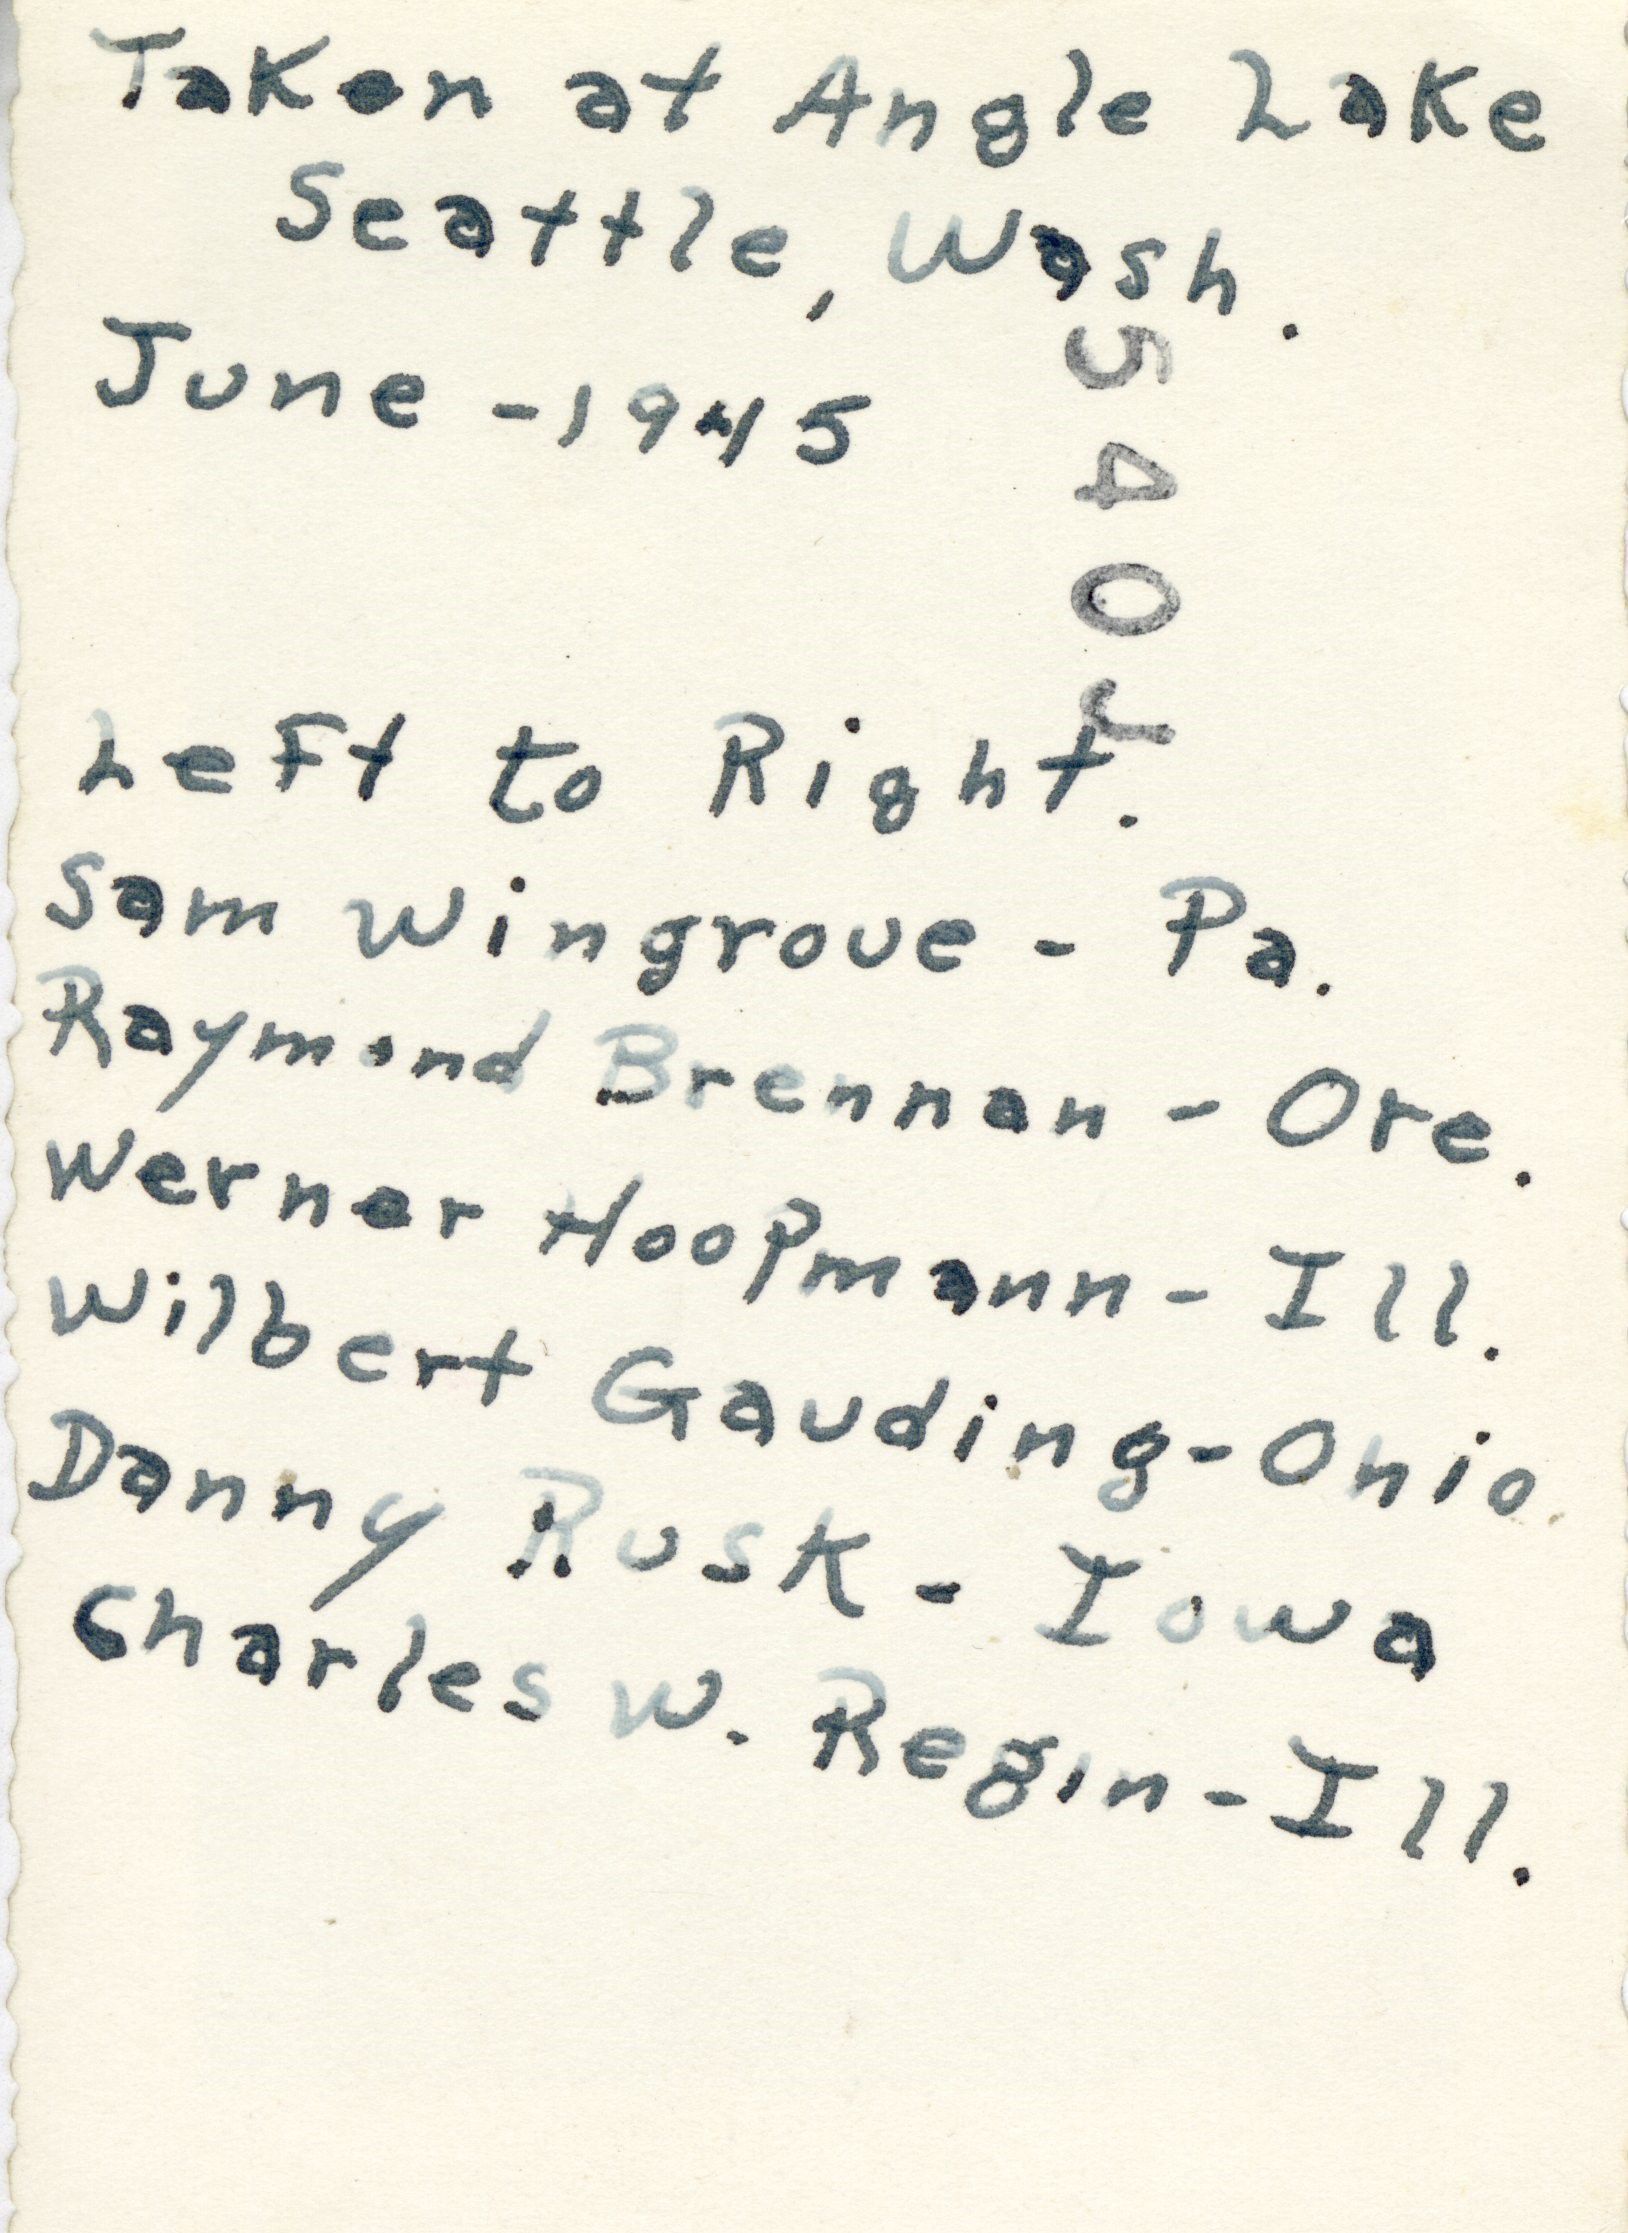 Taken at Angle Lake
Seattle, Wash.
June - 1945
540
Left to Right.
Sam Wingrove - Pa.
Raymond Brennan - Ore.
Werner Hoopmann - Ill.
Wilbert Gauding - Ohio.
Danny Rusk - Iowa
Charles W. Regin - Ill.